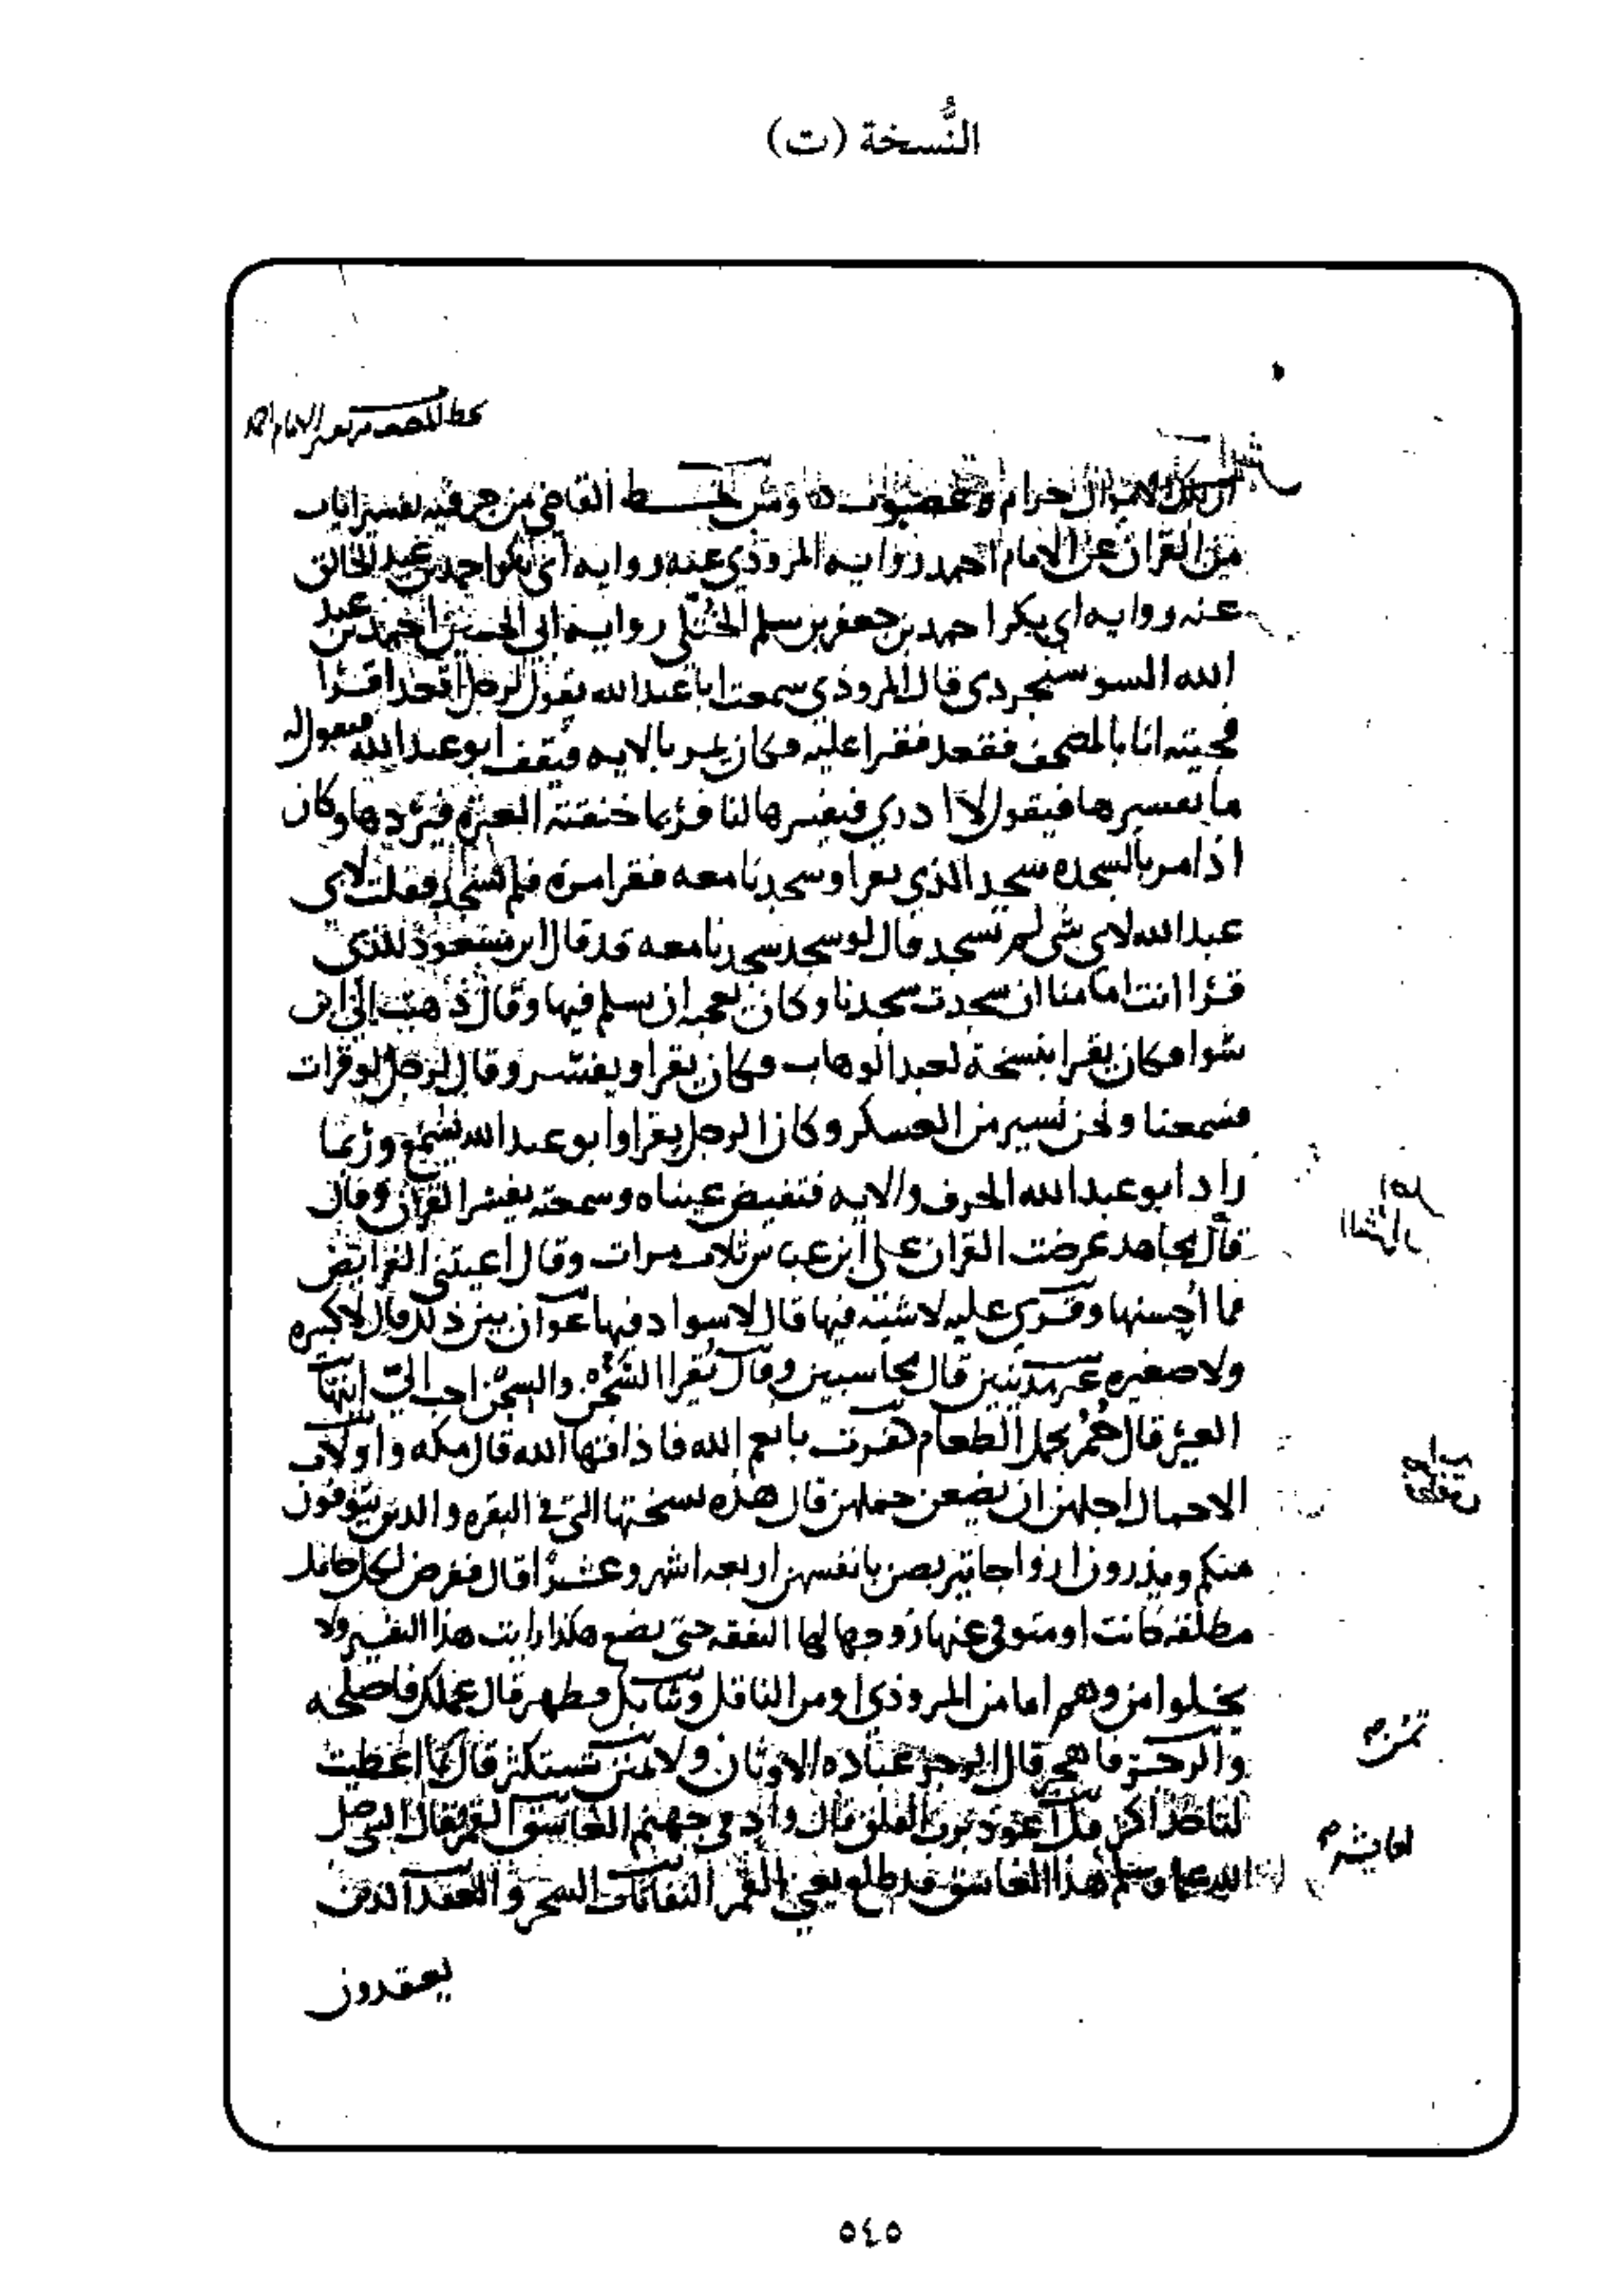 النُّسخة (ت)
القاضي من جز فيه تفسير ايات
من القران عن الامام احمد روايه المروذي عنه روايه ابي بكر احمد بن عبد الخالق
عنه روايه ابي بكر احمد بن جعفر بن سلم الختلي روايه ابي الحسين احمد بن عبد
الله السوسنجردي قال المروذي سمعت ابا عبد الله يقول لرجل اقعد اقرا
فجيته انا بالمصحف فقعد فقرا عليه فكان يمر بالايه فيقف ابو عبد الله فيقول له
ما تفسيرها فيقول لا ادري فيفسرها لنا فربما خنقته العبره فيردها وكان
اذا مر بالسجده سجد الذي يقرا وسجدنا معه فقرا مرة فلم يسجد فقلت لابي
عبد الله لاي شي لم تسجد قال لو سجد سجدنا معه قد قال ابن مسعود للذي
قرا انت امامنا ان سجدت سجدنا وكان يعجبه ان يسلم فيها وقال ذهبت الى ابن
سوا فكان يقرا بنسخة لعبد الوهاب فكان يقرا ويفسر وقال لرجل لو قرات
فسمعنا ونحن نسير من العسكر وكان الرجل يقرا وابو عبد الله يسمع وربما
زاد ابو عبد الله الحرف والايه فتفيض عيناه وسمعته يفسر القران وقال
قال مجاهد عرضت القران على ابن عباس ثلاث مرات وقال اعيتني الفرايض
فما احسنها وقرى عليه لا شيه فيها قال لا سواد فيها عوان بين ذلك قال لا كبيره
ولا صغيره غير مدينين قال محاسبين وقال نقرا السجن والسجن احب الي ايتها
العير قال حمر تحمل الطعام فكفرت بانعم الله فاذاقها الله قال مكه واولات
الاحمال اجلهن ان يضعن حملهن قال هذه نسختها التي في البقره والذين يتوفون
منكم ويذرون ازواجا يتربصن بانفسهن اربعه اشهر وعشرا قال ففرض لكل حامل
مطلقه كانت او متوفى عنها زوجها لها النفقه حتى تضع هكذا رايت هذا التفسير ولا
يخلوا من وهم اما من المروذي او من الناقل وثيابك فطهر قال عملك فاصلحه
والرجز فاهجر قال الرجز عباده الاوثان ولا تمنن تستكثر قال لما اعطيت
لتاخذ اكثر قل اعوذ برب الفلق قال واد في جهنم الغاسق القمر قال النبي صلى
الله عليه وسلم هذا الغاسق قد طلع يعني القمر النفاثات السحر والعقد الذين
يعقدون
٥٤٥